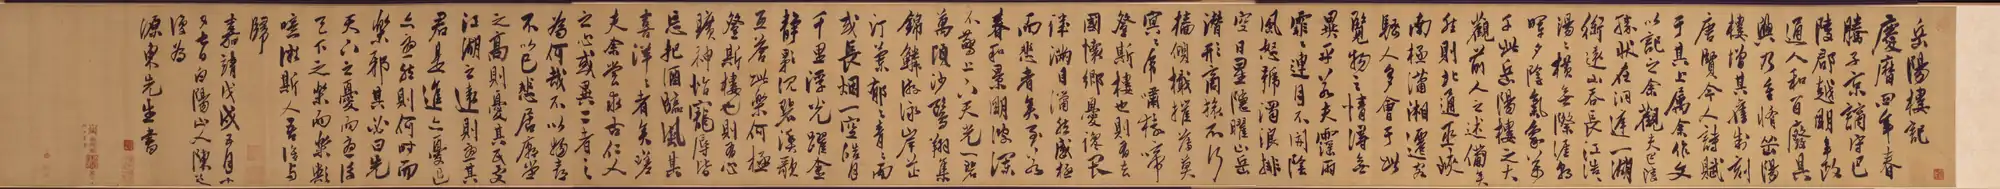 岳陽樓記
慶曆四年春
滕子京謫守巴
陵郡越明年政
通人和百廢具
興乃重修岳陽
樓增其舊制刻
唐賢今人詩賦
于其上屬余作文
以記之余觀夫巴陵
勝狀在洞庭一湖
銜遠山吞長江浩浩
湯湯橫無際涯朝
暉夕陰氣象萬
千此岳陽樓之大
觀前人之述備矣
然則北通巫峽
南極瀟湘遷客
騷人多會于此
覽物之情得無
異乎若夫霪雨
霏霏連月不開陰
風怒號濁浪排
空日星隱曜山岳
潛形商旅不行
檣傾楫摧薄暮
冥冥虎嘯猿啼
登斯樓也則有去
國懷鄉憂讒畏
譏滿目蕭然感極
而悲者矣至若
春和景明波瀾
不驚上下天光一碧
萬頃沙鷗翔集
錦鱗游泳岸芷
汀蘭郁郁青青而
或長烟一空皓月
千里浮光躍金
靜影沉璧漁歌
互答此樂何極
登斯樓也則有心
曠神怡寵辱皆
忘把酒臨風其
喜洋洋者矣嗟
夫余嘗求古仁人
之心或異二者之
為何哉不以物喜
不以己悲居廟堂
之高則憂其民處
江湖之遠則憂其
君是進亦憂退
亦憂然則何時而
樂耶其必曰先
天下之憂而憂後
天下之樂而樂歟
噫微斯人吾誰與
歸
嘉靖戊戌五月十
日白陽山人陳淳
為
源東先生書